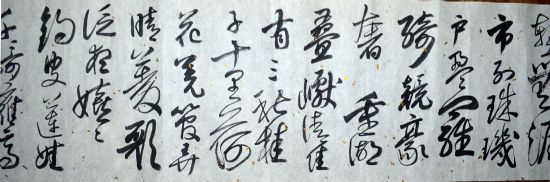 塹無涯
市列珠璣
户盈羅
綺競豪
奢 重湖
疊巘清佳
有三秋桂
子十里荷
花羌管弄
晴菱歌
泛夜嬉々
釣叟蓮娃
千騎擁高